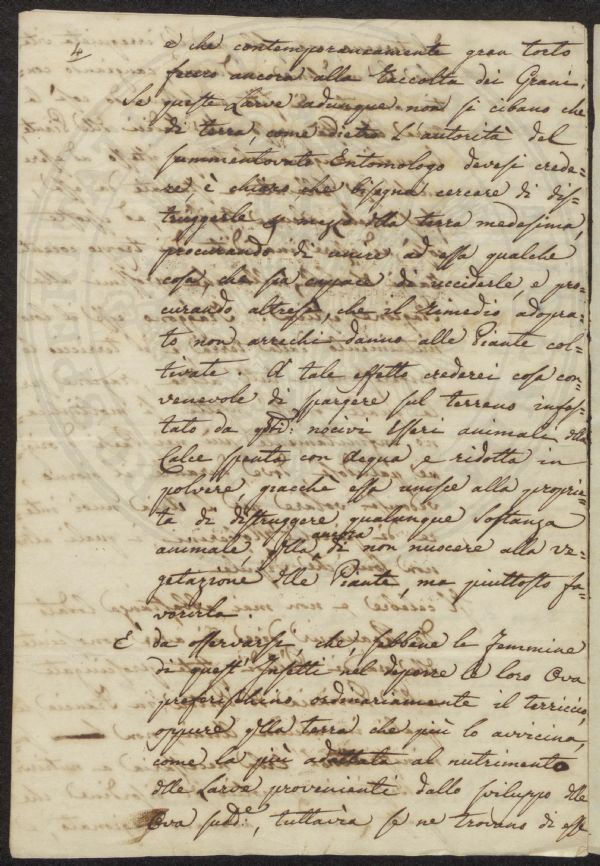 4
e che contemporaneamente gran torto
fecero ancora alla raccolta dei Grani.
Se queste Larve adunque non si cibano che
di terra, come dietro l'autorità del
summentovato Entomologo devesi crede=
re è chiaro, che bisogna cercare di dis=
truggerle mezo della terra medesima,
procurando di unire ad essa qualche
cosa, che sia capace di ucciderle, e pro=
curando altresì, che il rimedio adopra=
to non arrechi danno alle Piante col=
tivate. A tale effetto crederei cosa con=
venevole di spargere sul terreno infes=
tato da nocivi Esseri animali della
Calce spenta con Acqua, e ridotta in
polvere, giacchè essa unisce alla proprie=
tà di distruggere qualunque Sostanza
ancora
animale, qlla di non nuocere alla ve=
getazione dlle Piante, ma piuttosto fa=
vorirla.
È da osservarsi, che, sebbene le Femmine
di quest' Insetti nel deporre le loro Ova
preferischino ordinariamente il terriccio,
oppure qlla terra che più lo avvicina,
come la più adattata al nutrimento
dlle Larve provenienti dallo sviluppo dlle
Ova sudde, tuttavia se ne trovano di esse